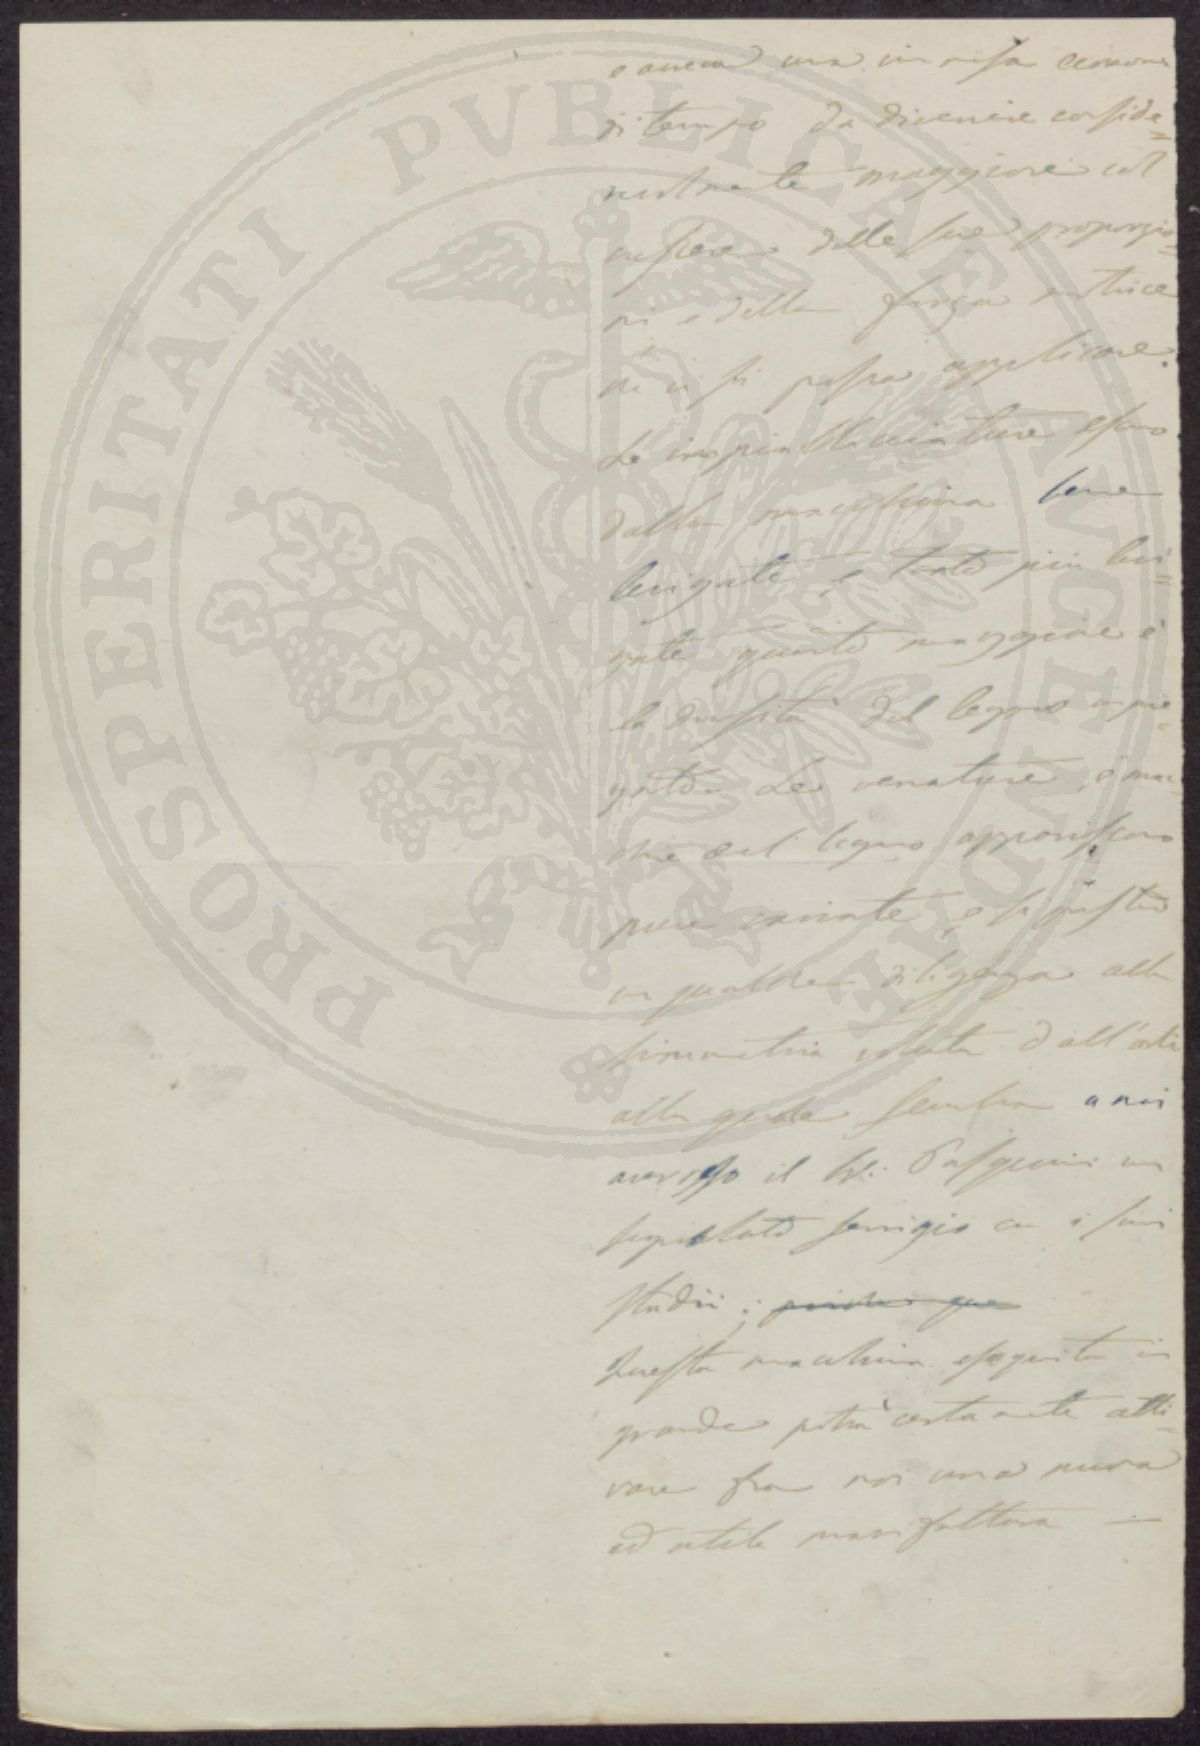 PROSPERITATI PUBLICAE AUGENDAE
e ancora una economia
di tempo da divenire conside=
maggiore col
crescere delle sue proporzio=
ni e della forza motrice
che vi si possa applicare.
Le impiallacciature escono
dalla macchina bene
levigate, e tanto più levi=
gate quanto maggiore è
la densità del legno impie=
gato. Le venature, e mac=
chie del legno appariscono
pure variate, e si prestano
con qualche diligenza alla
simmetria voluta dall'arte
alla quale sembra a noi
il Sig: Pasquini un
segnalato servigio con i suoi
studii;
Questa macchina eseguita in
grande potrà certamente atti=
vare fra noi una nuova
ed utile manifattura —